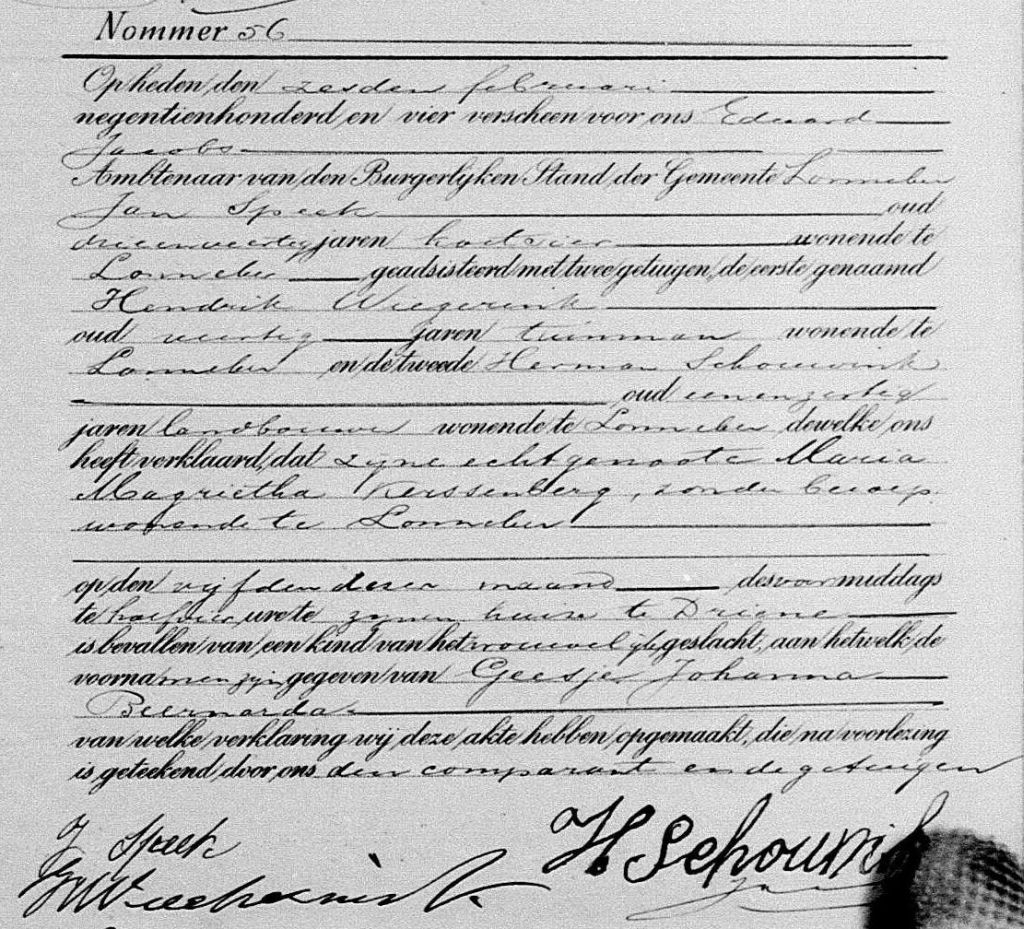 Nommer 56
Op heden den zesden februari
negentienhonderd en vier verscheen voor ons Eduard
Jacobs
Ambtenaar van den Burgerlyken Stand der Gemeente Lonneker
Jan Speek oud
drieenveertig jaren koetsier wonende te
Lonneker geadsisteerd met twee getuigen, de eerste genaamd
Hendrik Wiegerink
oud veertig jaren tuinman wonende te
Lonneker en de tweede Herman Schouwink
oud eenenzestig
jaren landbouwer wonende te Lonneker dewelke ons
heeft verklaard, dat zijne echtgenoote Maria
Magrietha Kerssenberg, zonder beroep
wonende te Lonneker
op den vijfden dezer maand des voormiddags
te half vier ure te zijnen huize te Driene
is bevallen van een kind van het vrouwelijk geslacht, aan hetwelk de
voornamen zijn gegeven van Geesje Johanna
Beernarda
van welke verklaring wij deze akte hebben opgemaakt, die na voorlezing
is geteekend door ons den comparant en de getuigen
J Speek
H Schouwink